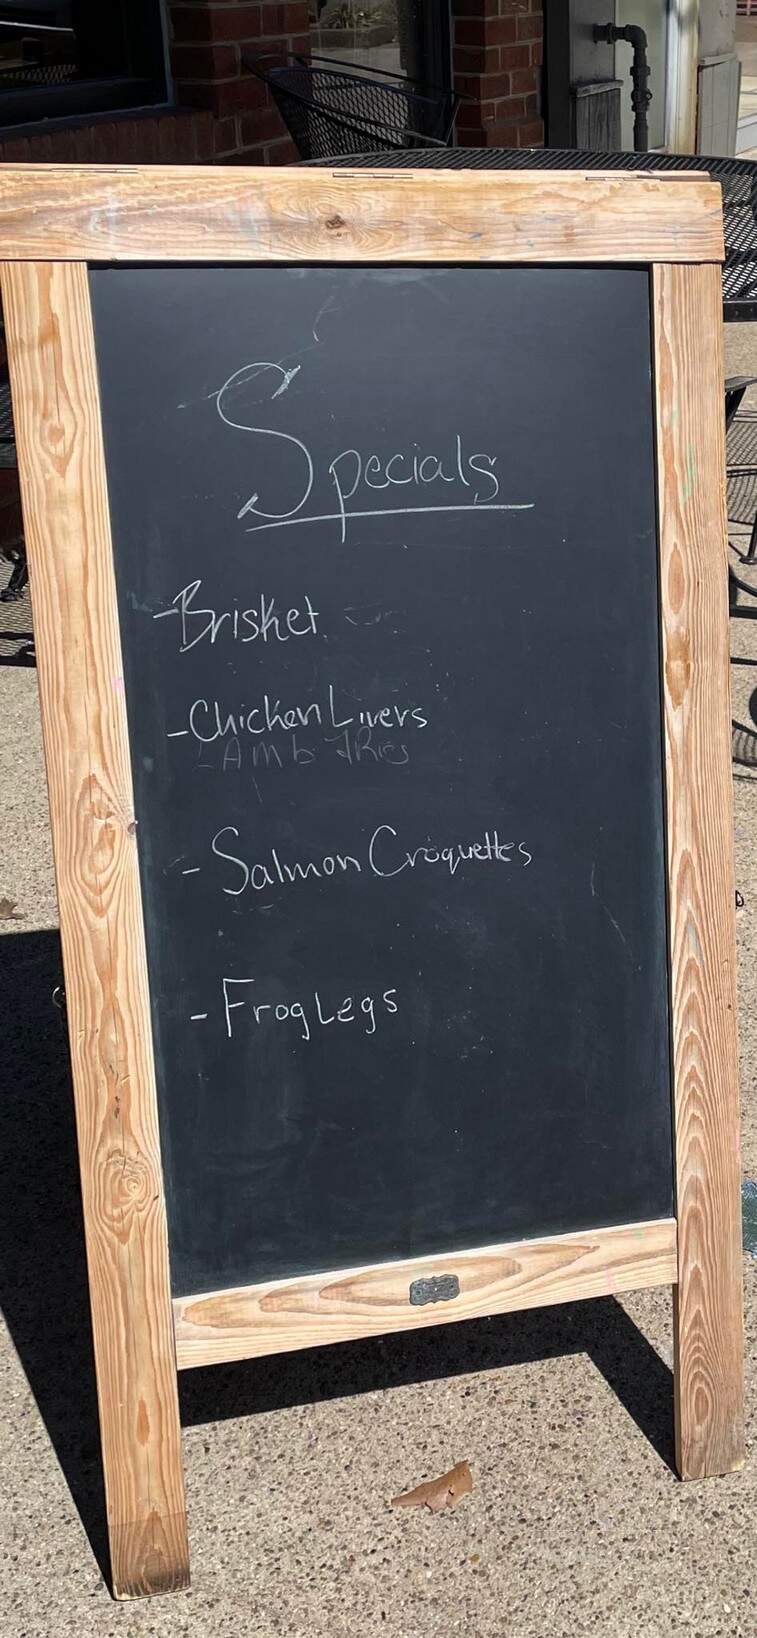 Specials
-Brisket
-Chicken Livers
-Lamb Fries
- Salmon Croquettes
- Frog Legs